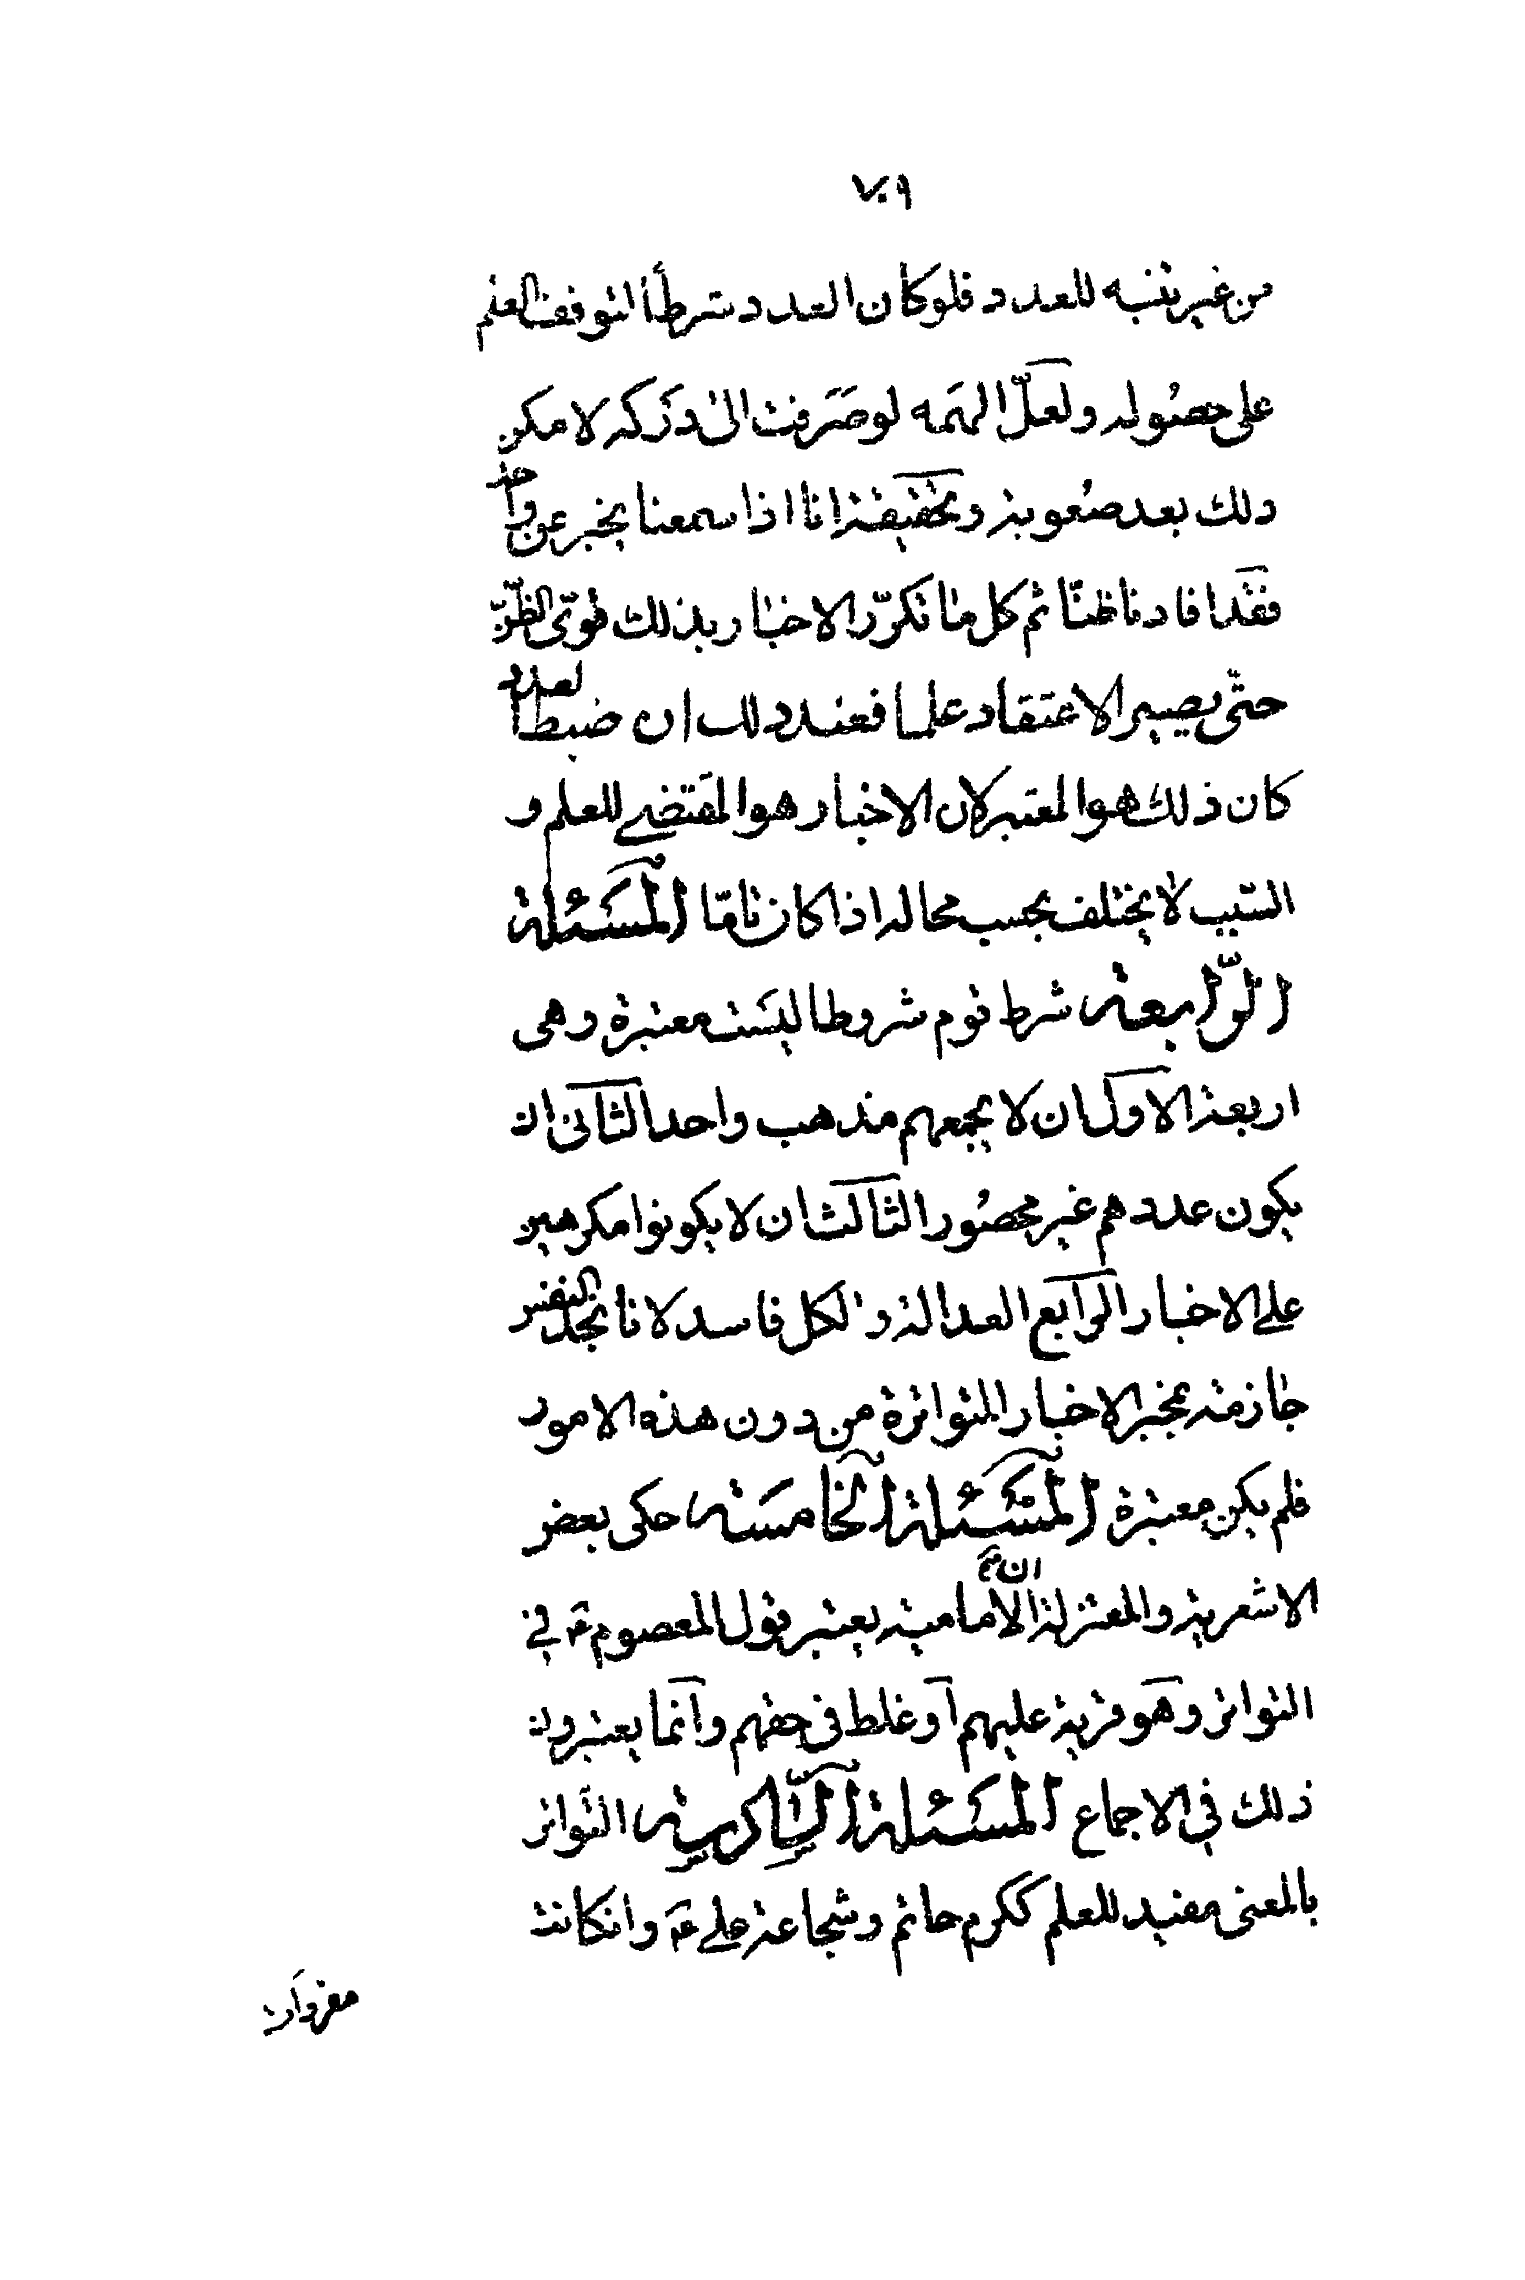 ٧٠٩
من غير تنبه للعدد فلو كان العدد شرطاً لتوقف العلم
على حصوله ولعلّ الهمه لو صرفت الى دركه لامكن
ذلك بعد صعوبة وتحقيقه انا اذا سمعنا بخبر عن واحد
فقد افادنا ظنّا ثم كل ما تكرّر الاخبار بذلك قوى الظنّ
حتّى يصير الاعتقاد علما فعند ذلك ان ضبط العدد
كان ذلك هو المعتبر لان الاخبار هو المقتضى للعلم و
السبب لا يختلف بحسب محاله اذا كان تامّا المسئلة
الرّابعة شرط قوم شروطا ليست معتبرة وهى
اربعة الاول ان لا يجمعهم مذهب واحد الثانى ان
يكون عددهم غير محصور الثالث ان لا يكونوا مكرهين
على الاخبار الرابع العدالة والكل فاسد لانا نجد النفس
جازمة بمخبر الاخبار المتواترة من دون هذه الامور
فلم يكن معتبرة المسئلة الخامسة حكى بعض
الاشعرية والمعتزلة ان الامامية يعتبر قول المعصوم ع فى
التواتر وهو فرية عليهم او غلط فى حقهم وانما يعتبرون
ذلك فى الاجماع المسئلة السّادسة التواتر
بالمعنى مفيد للعلم ككرم حاتم وشجاعة على ع وانكانت
مفرداته